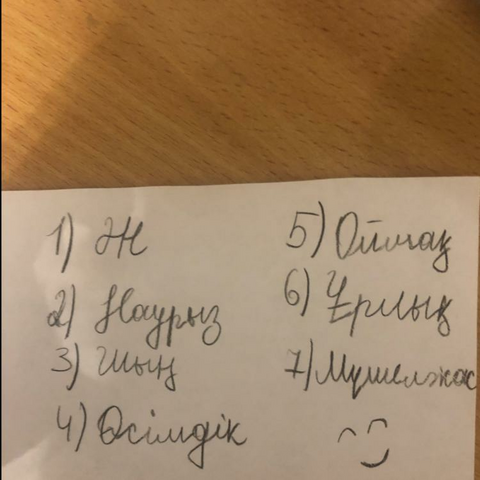 1) Ж
2) Наурыз
3) Шың
4) Өсімдік
5) Оймақ
6) Ұрлық
7) Мүшелжас